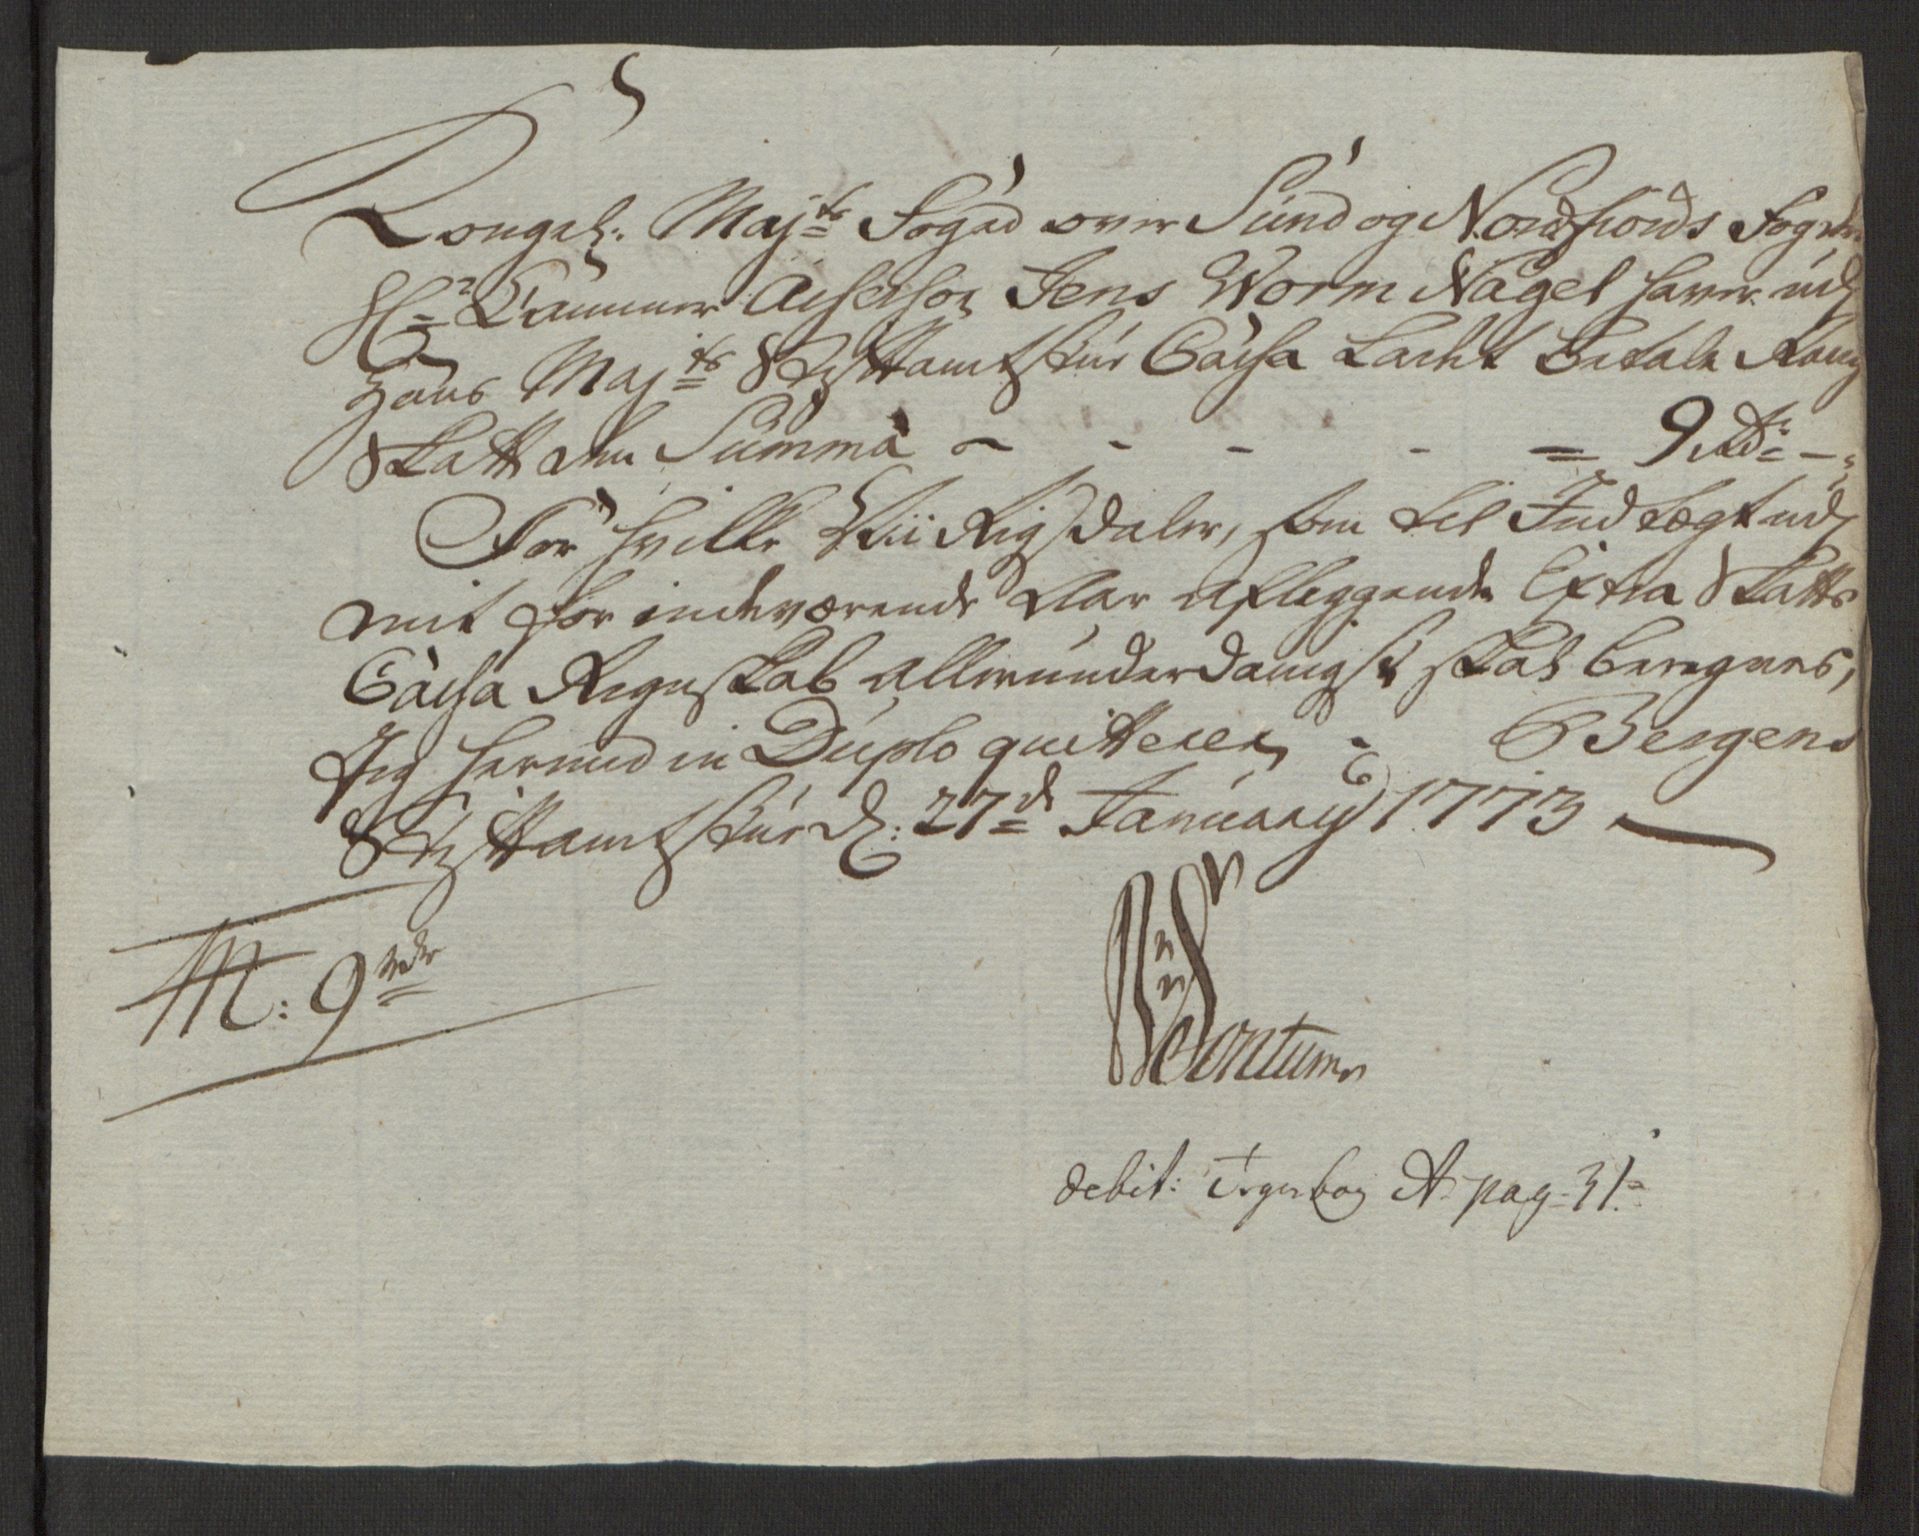 Kongel: Maj:ts Foged over Sund og Nordfiords Fogderi
Hr Cammer Assessor Jens Worm Nagel haver udi
Hans Maj:ts Stiftamtstue Cassa ladet betale Rang
Skatt den Summa - - - - = 9 Rdr -
For hvilke Nii Rigsdaler, som til Indtægt udi
mit for indeværende Aar aflæggende Extra Skatts
Cassa Regnskab allerunderdanigst skal beregnes,
Jeg hermed in Duplo quitterer - Bergens
Stiftamtstue d: 27de January 1773
M: 9 rdr
Pontum
debit: A pag. 31